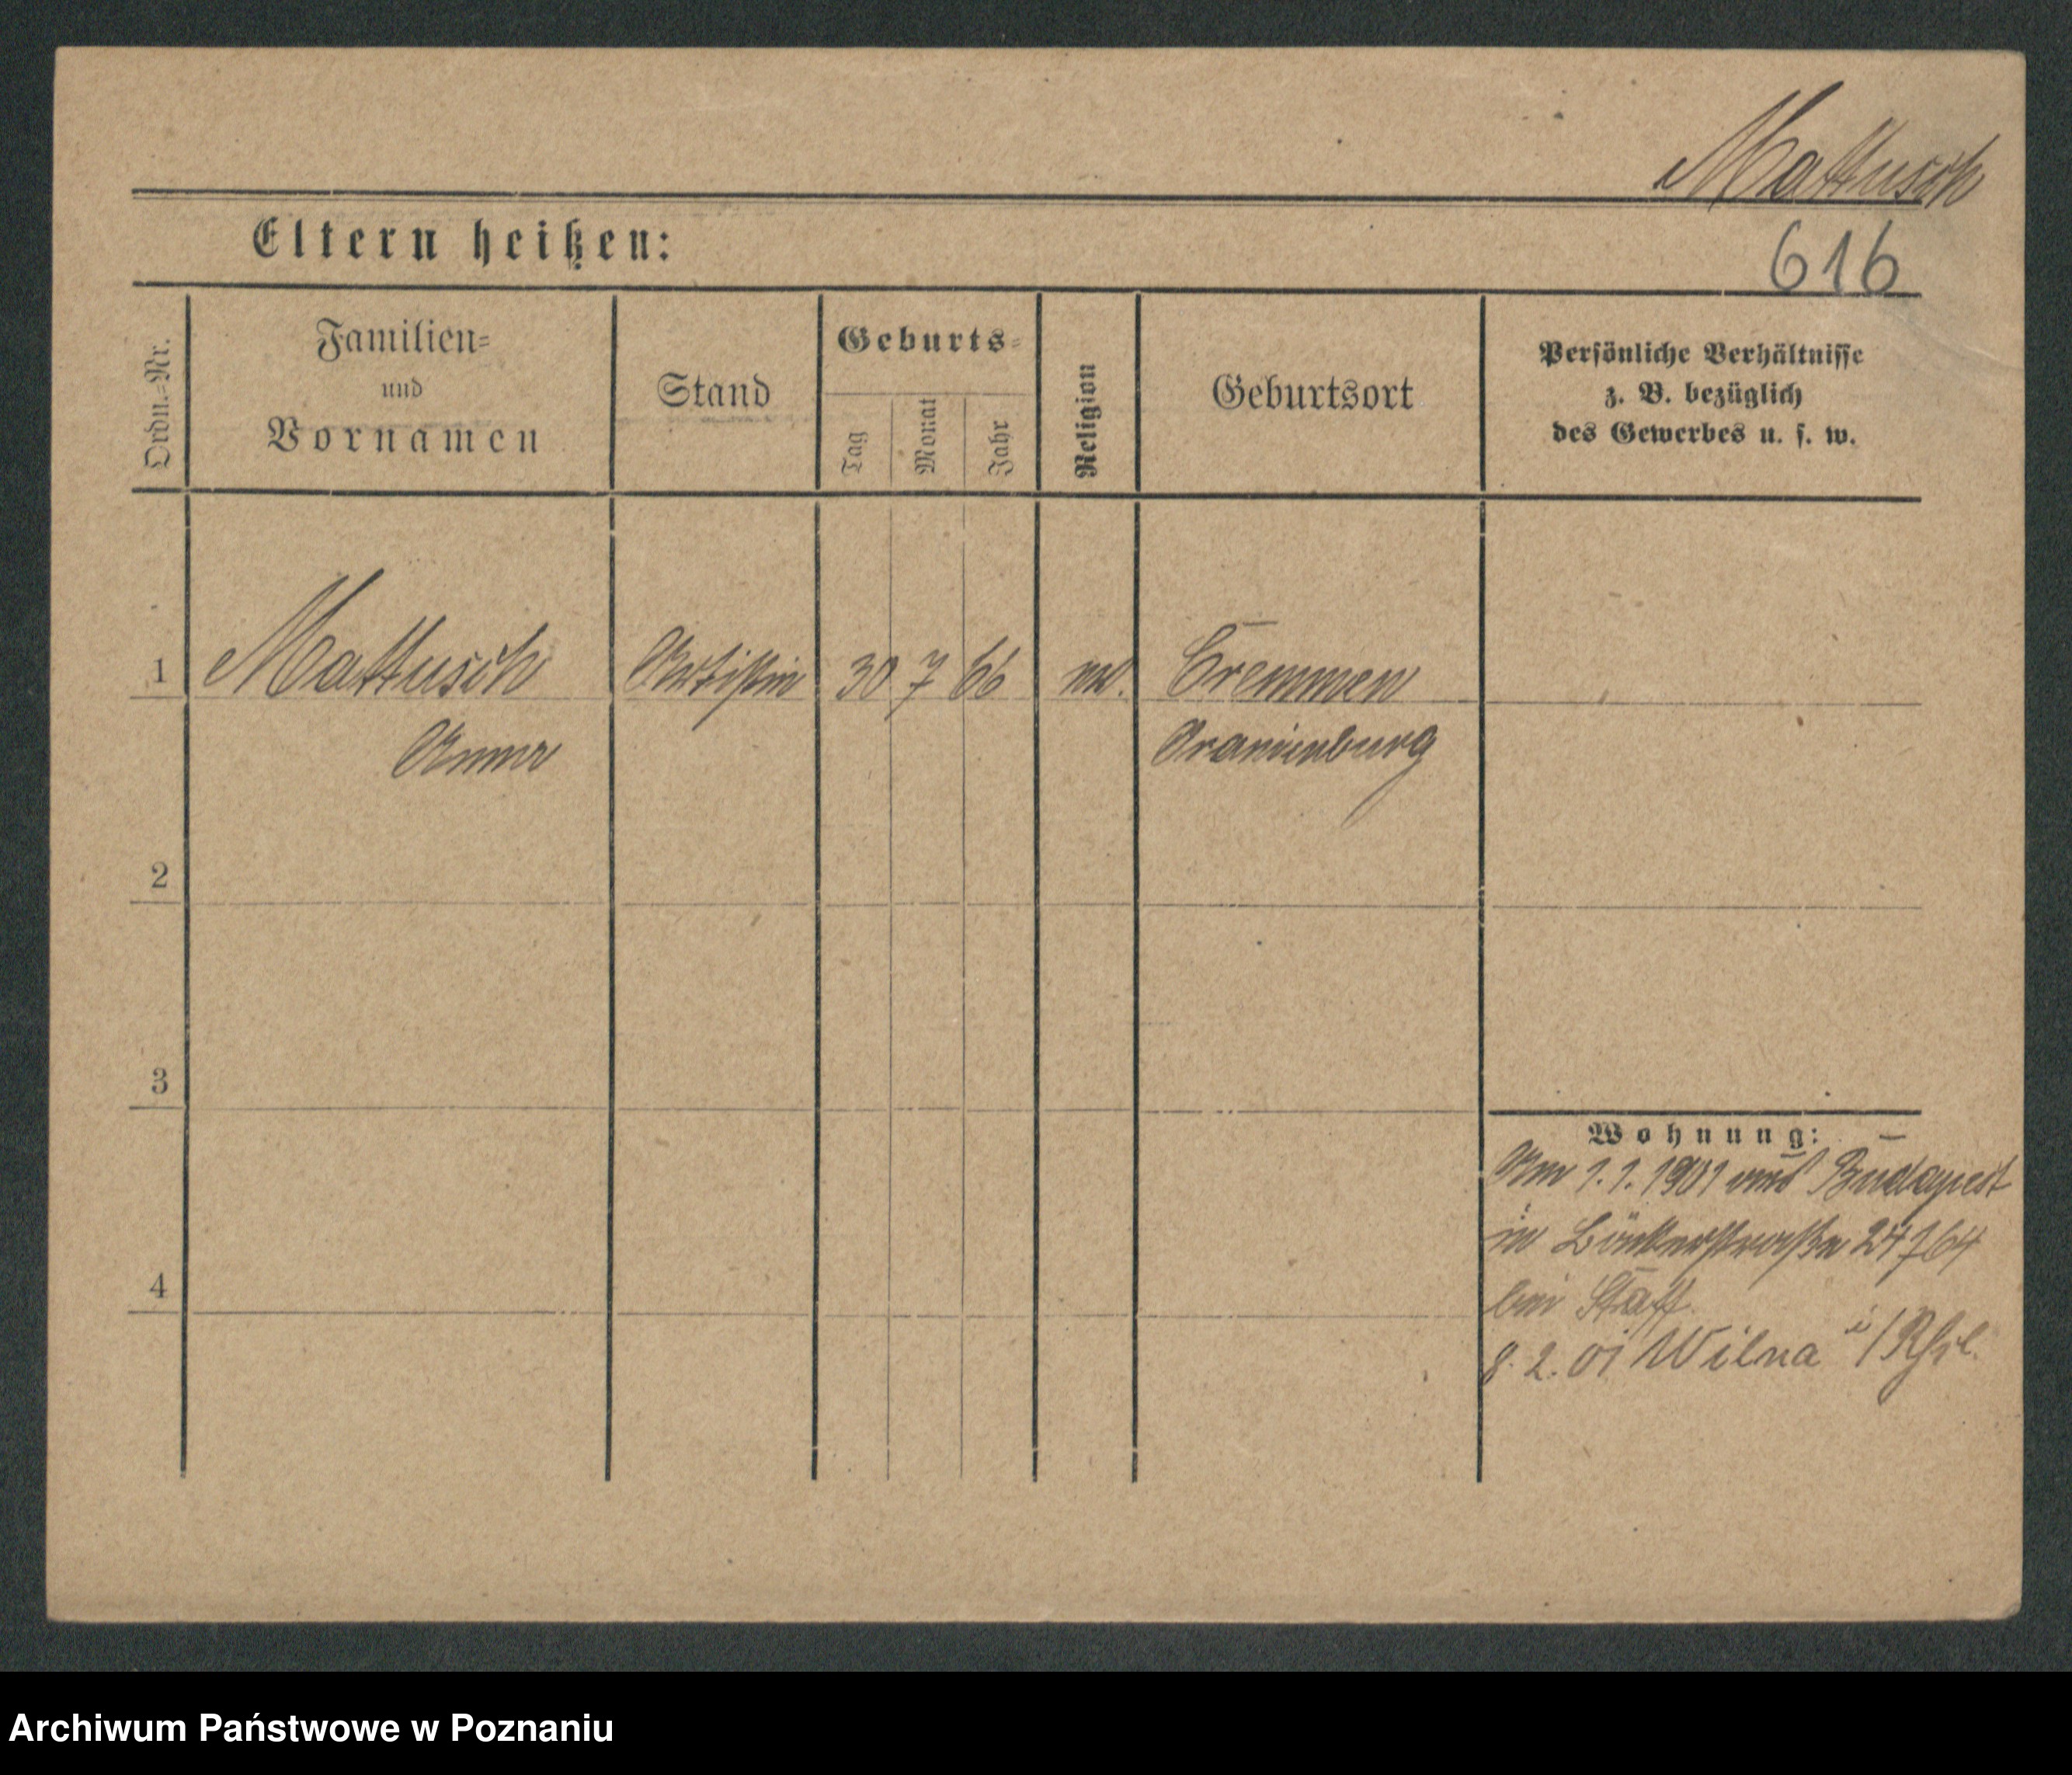 Mattusch
Eltern heißen:
616
Ordn.-Nr.
Familien-
und
Vornamen
Stand
Geburts-
Tag
Monat
Jahr
Religion
Geburtsort
Persönliche Verhältnisse
z. B. bezüglich
des Gewerbes u. s. w.
1
Mattusch
Artistin
30
7
66
Cremmen
Anna
Oranienburg
2
3
4
Wohnung:
Am 1.1.1901 aus Budapest
in Bäckerstraße
bei Staff
8. 2. 01 Wilna
Archiwum Państwowe w Poznaniu